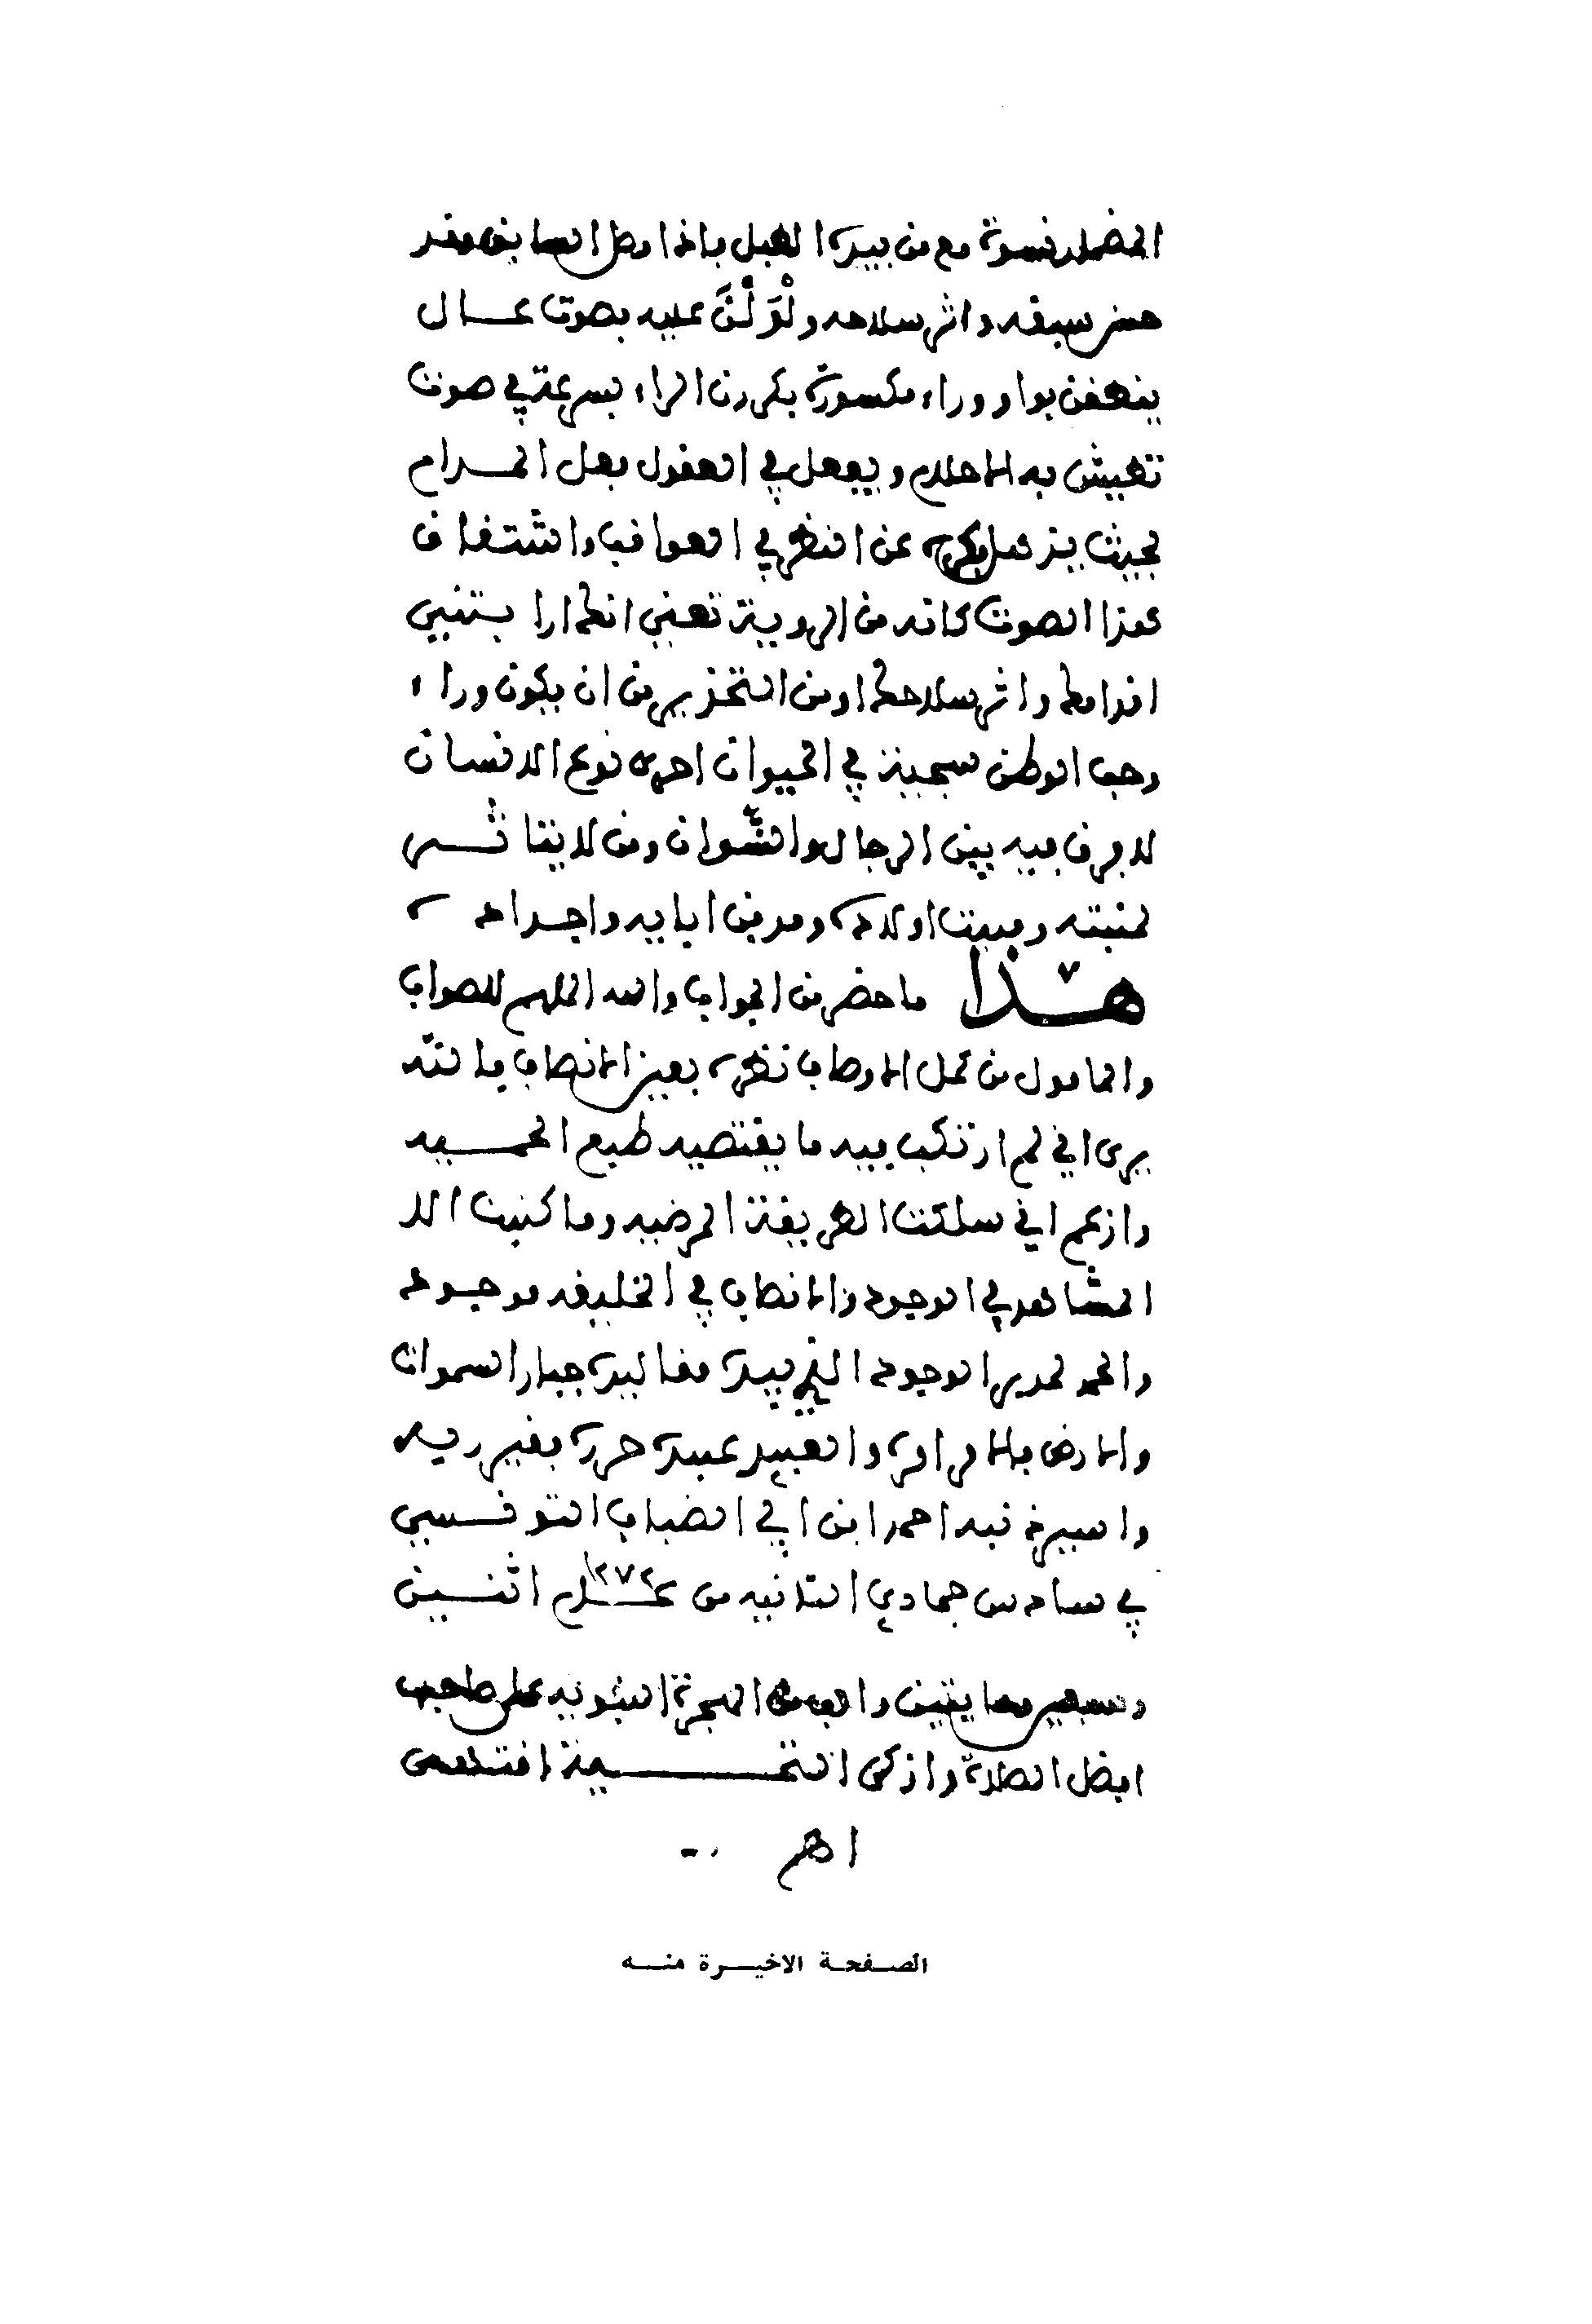 المضمار نسوة مع من بيده الطبل فاذا وصل السابق وقد
حسن سبقه واثر سلاحه ولولن عليه بصوت عال
ينطقن بواو وراء مكسورة يكررن الراء بسرعة في صوت
تطيش به الاحلام ويفعل في العقول فعل المدام
بحيث يذهل فكره عن النظر في العواقب واشتقاق
هذا الصوت كانه من الروية تعني انظارا بتنبي
اقدامك واثر سلاحك او من التحذير من ان يكون وراء
وحب الوطن سجية في الحيوان احرى نوع الانسان
لا فرق فيه بين الرجال والنسوان ومن لا يتاثر
لمنبته ومبيت اولاده ومدفن ابايه واجداده
هذا ما حضر من الجواب والله الملهم للصواب
والمامول من كمل الاوصاف نظره بعين الانصاف فالله
يرى اني لم ارتكب فيه ما يقتضيه طبع الحميه
وازعم اني سلكت الطريقة المرضيه وما كتبت الا
المشاهد في الوجود والانصاف في الخليقه موجود
والحمد لمدبر الوجود الذي بيده مقاليده جبار السموات
والارض بالامر افره والعبيد عبيده حرره بفقير ربه
واسير ذنبه احمد ابن ابي الضياف التونسي
في سادس جمادي الثانيه من عام ١٢٧٢ اثنين
وسبعين ومايتين والف من الهجرة النبويه على صاحبها
افضل الصلاة وازكى التحية انتهى
اهـ
الصفحة الاخيرة منه